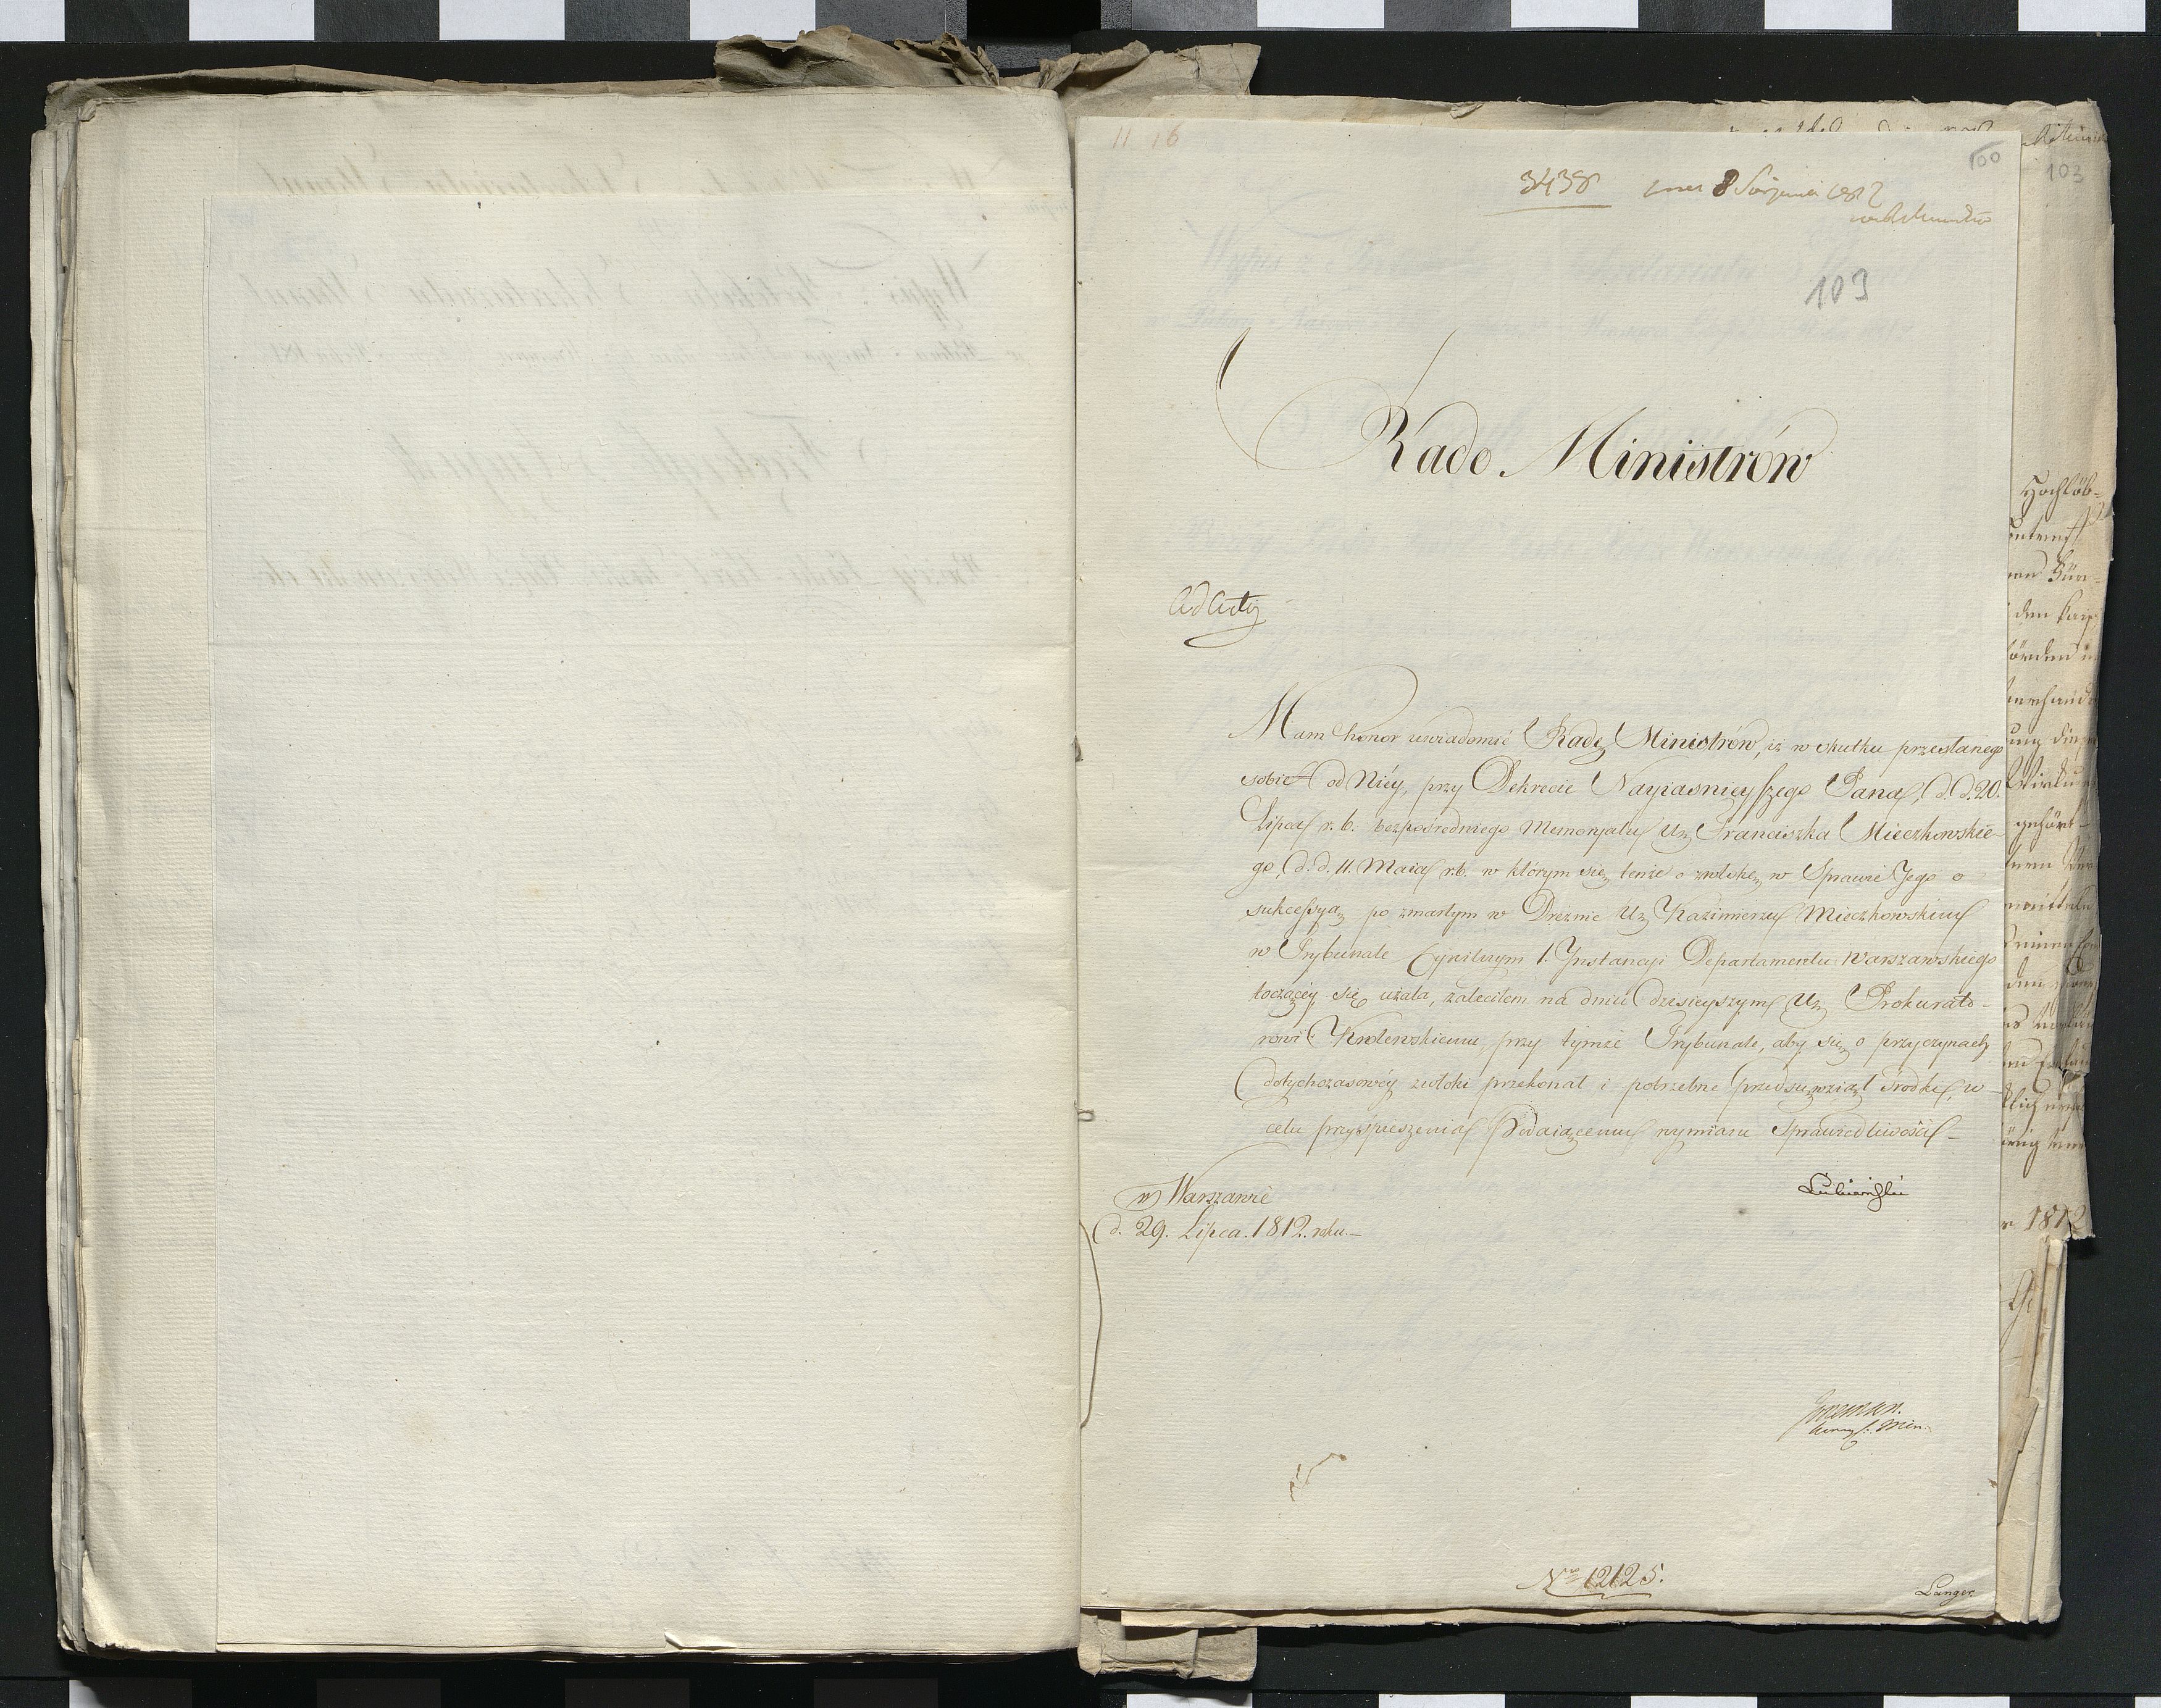 11 16
100
103
3438
8 Sierpnia 1812
109
Rado Ministrów
Ad Acta
Mam honor uwiadomić Radę Ministrów, iż w skutku przesłanego
sobie od Niéy, przy Dekrecie Nayiaśnieyszego Pana, d. d. 20.
Lipca r. b. bezpośredniego Memoryału Ur. Franciszka Mieczkowskie-
go, d. d. 11. Maia r. b. w którym się tenże o zwłokę w Sprawie Jego o
sukcessyą po zmarłym w Dreznie Ur. Kazimierzu Mieczkowskim
w Trybunale Cywilnym 1. Instancyi Departamentu Warszawskiego
toczącéy się użala, zaleciłem na dniu dzisieyszym Ur. Prokurato-
rowi Krolewskiemu, przy tymże Trybunale, aby się o przyczynach
dotychczasowéy zwłoki przekonał i potrzebne przedsięwziął środki, w
celu przyśpieszenia Podaiącemu wymiaru Sprawiedliwości –
w Warszawie
d. 29. Lipca. 1812. roku. –
Łubieński
No 12125.
Langer
Hochlöb-
den
gehört
1812